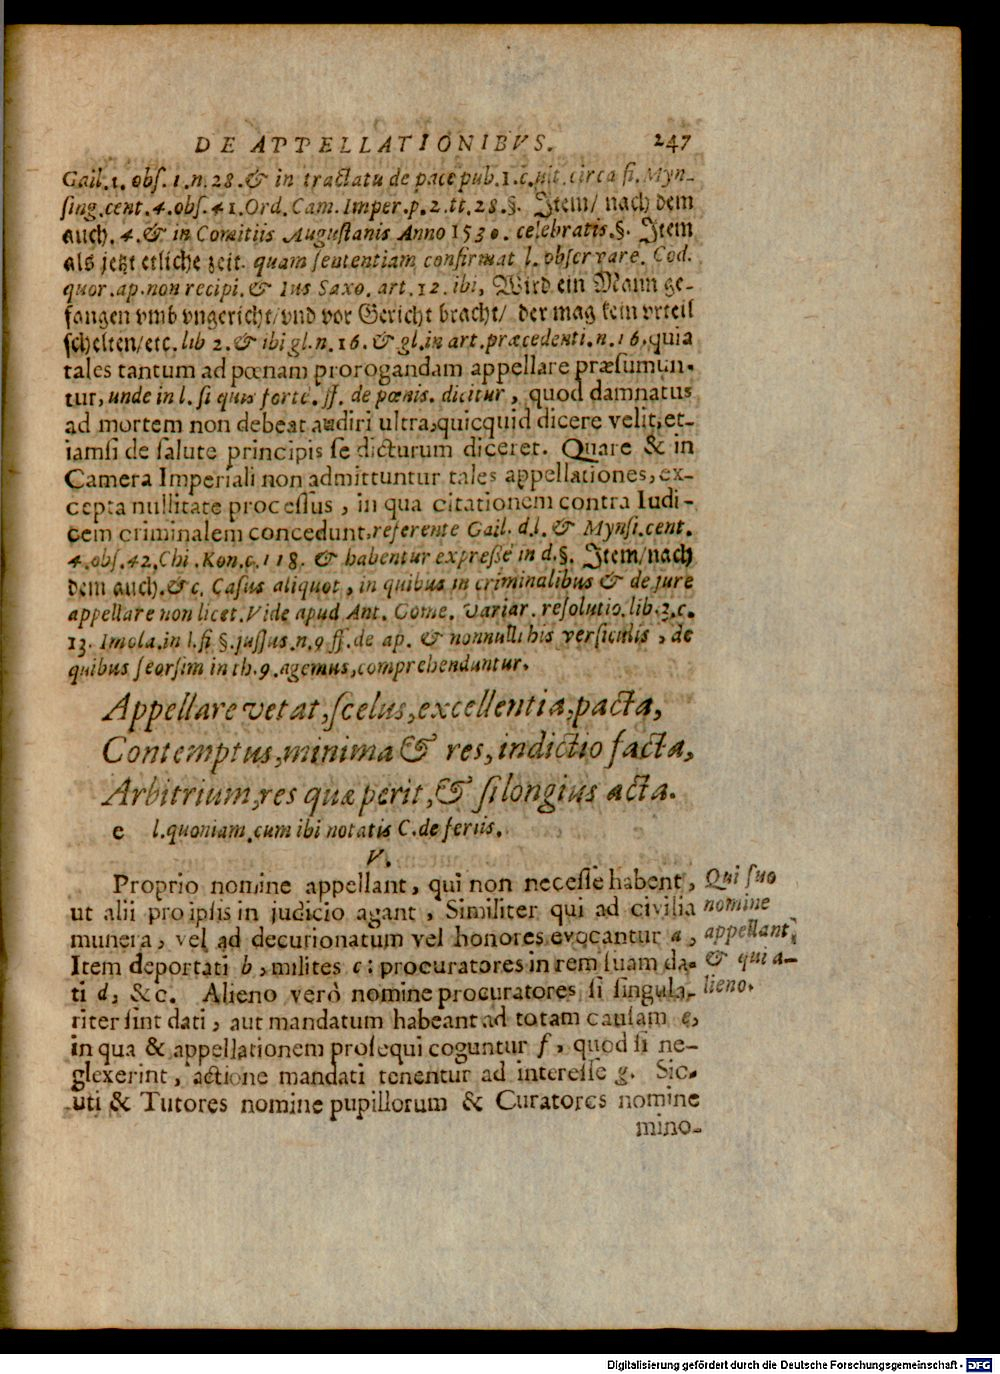 DE APPELLATIONIBVS. 247
Gail. 1. obſ. 1. n. 28. & in tractatu de pace pub. 1. c. ult. circa fi. Myn-
ſing. cent. 4. obſ. 41. Ord. Cam. Imper. p. 2. tt. 28. §. Item/ nach dem
auch. 4. & in Comitiis Auguſtanis Anno 1530. celebratis. §. Item
als jetzt etliche zeit. quam ſententiam confirmat l. obſervare. Cod.
quor. ap. non recipi. & Ius Saxo. art. 12. ibi, Wird ein Mann ge-
fangen vmb vngericht/ vnd vor Gericht bracht/ der mag kein vrteil
ſchelten/ etc. lib 2. & ibi gl. n. 16. & gl. in art. præcedenti. n. 16. quia
tales tantum ad pœnam prorogandam appellare præſumun-
tur, unde in l. ſi quis forte. ff. de pœnis. dicitur, quod damnatus
ad mortem non debeat audiri ultra, quicquid dicere velit, et-
iamſi de ſalute principis ſe dicturum diceret. Quare & in
Camera Imperiali non admittuntur tales appellationes, ex-
cepta nullitate proceſſus, in qua citationem contra Iudi-
cem criminalem concedunt. referente Gail. d. l. & Mynſi. cent.
4. obſ. 42. Chi. Kon. c. 118. & habentur expreſſè in d. §. Item/ nach
dem auch. &c. Caſus aliquot, in quibus in criminalibus & de jure
appellare non licet. Vide apud Ant. Gome. variar. reſolutio. lib. 3. c.
13. Imola. in l. ſi §. juſſus. n. 9 ff. de ap. & nonnulli his verſiculis, de
quibus ſeorſim in th. 9. agemus, comprehenduntur.
Appellare vetat, ſcelus, excellentia, pacta,
Contemptus, minima & res, indictio facta,
Arbitrium, res quæ perit, & ſi longius acta.
e l. quoniam. cum ibi notatis C. de feriis.
V.
Proprio nomine appellant, qui non neceſſe habent, Qui ſuo
ut alii pro ipſis in judicio agant, Similiter qui ad civilia nomine
munera, vel ad decurionatum vel honores evocantur a, appellant,
Item deportati b, milites c: procuratores in rem ſuam da- & qui a-
ti d, &c. Alieno verò nomine procuratores ſi ſingula- lieno.
riter ſint dati, aut mandatum habeant ad totam cauſam e,
in qua & appellationem proſequi coguntur f, quod ſi ne-
glexerint, actione mandati tenentur ad intereſſe g. Sic-
uti & Tutores nomine pupillorum & Curatores nomine
mino-
Digitalisierung gefördert durch die Deutsche Forschungsgemeinschaft - DFG